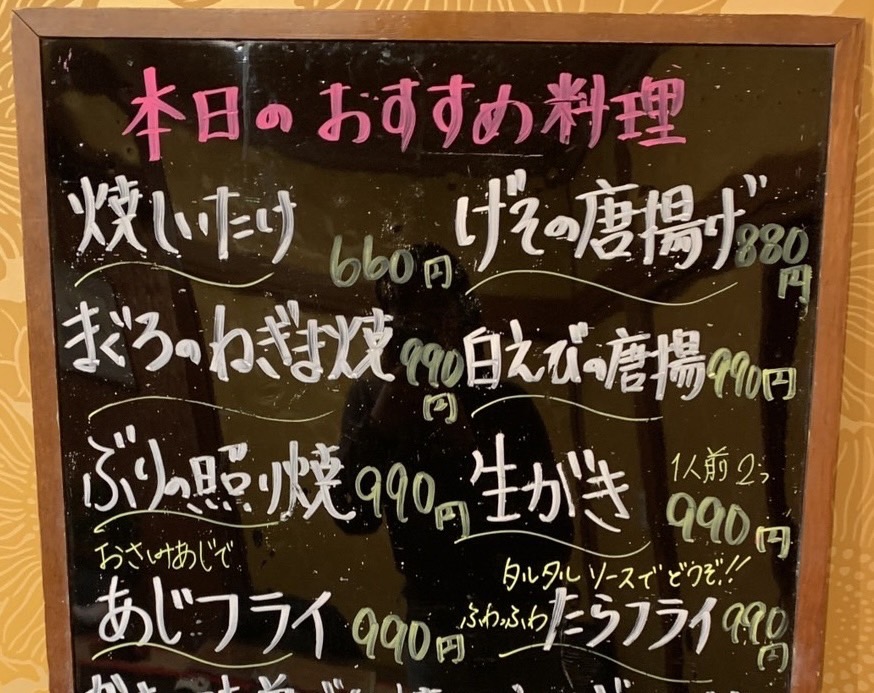 本日のおすすめ料理
焼しいたけ 660円
げその唐揚げ 880円
まぐろのねぎま焼 990円
白えびの唐揚 990円
ぶりの照り焼 990円
生がき 1人前2つ 990円
おさしみあじで
あじフライ 990円
タルタルソースでどうぞ!!
ふわっふわ たらフライ 990円